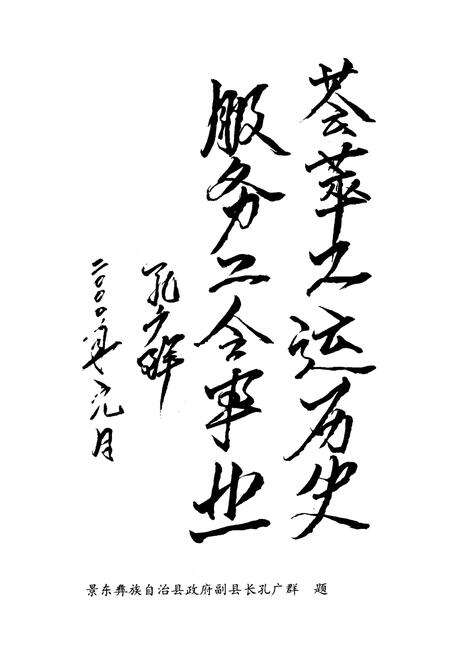 荟萃工运历史
服务工会事业
孔广群
二〇〇〇年元月
景东彝族自治县政府副县长孔广群 题